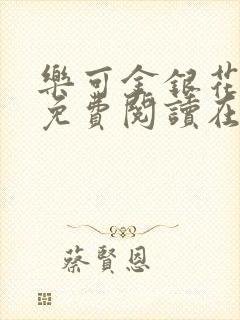 樂可金銀花
免費閱讀在
蔡賢恩